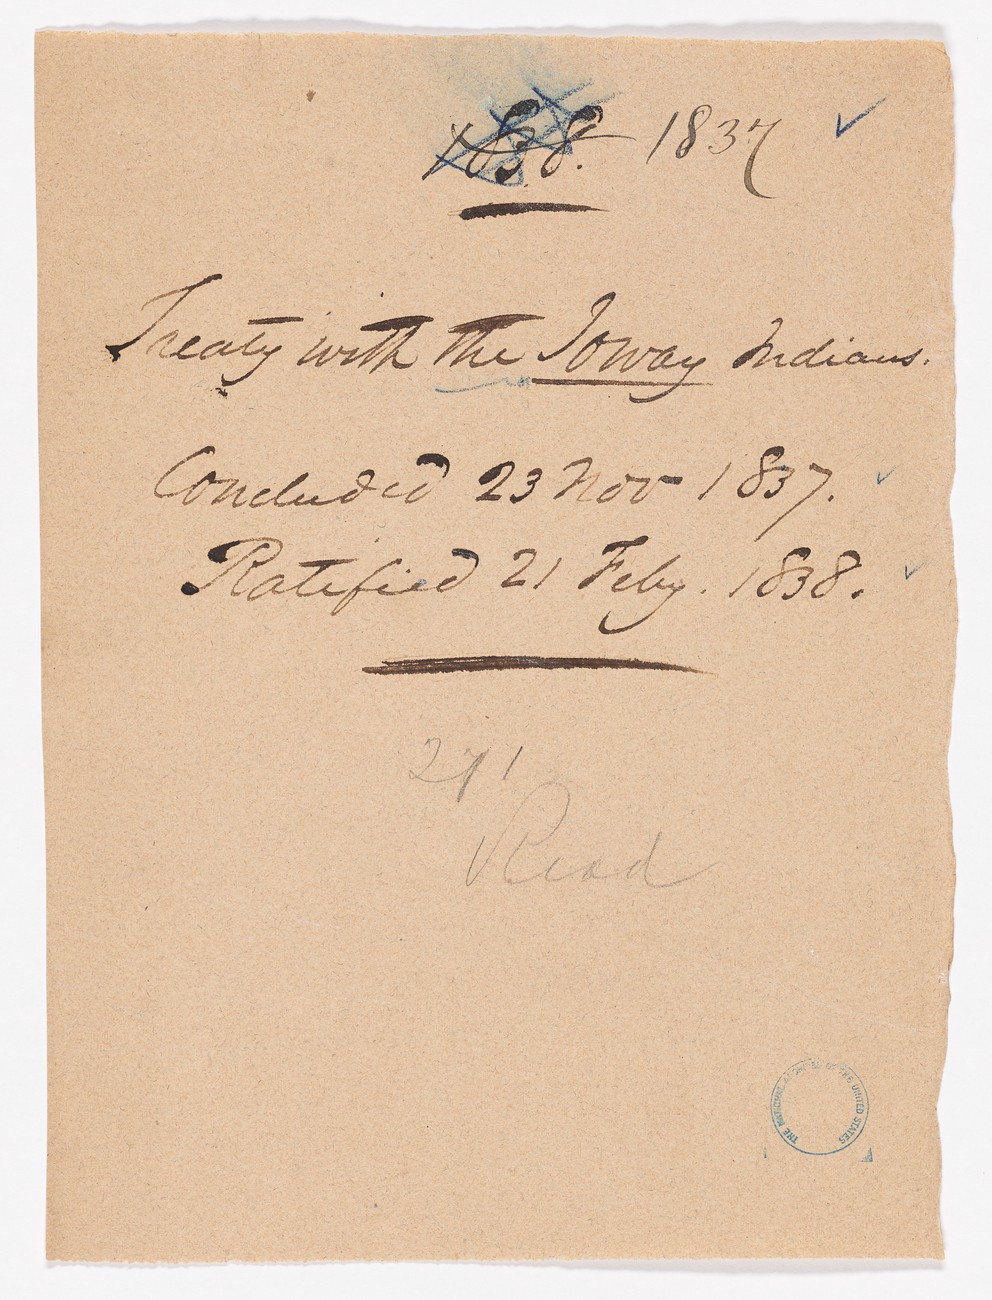 1838. 1837 ✓
Treaty with the Ioway Indians.
Concluded 23 Nov 1837. ✓
Ratified 21 Feby. 1838. ✓
271
Read
THE NATIONAL ARCHIVES OF THE UNITED STATES